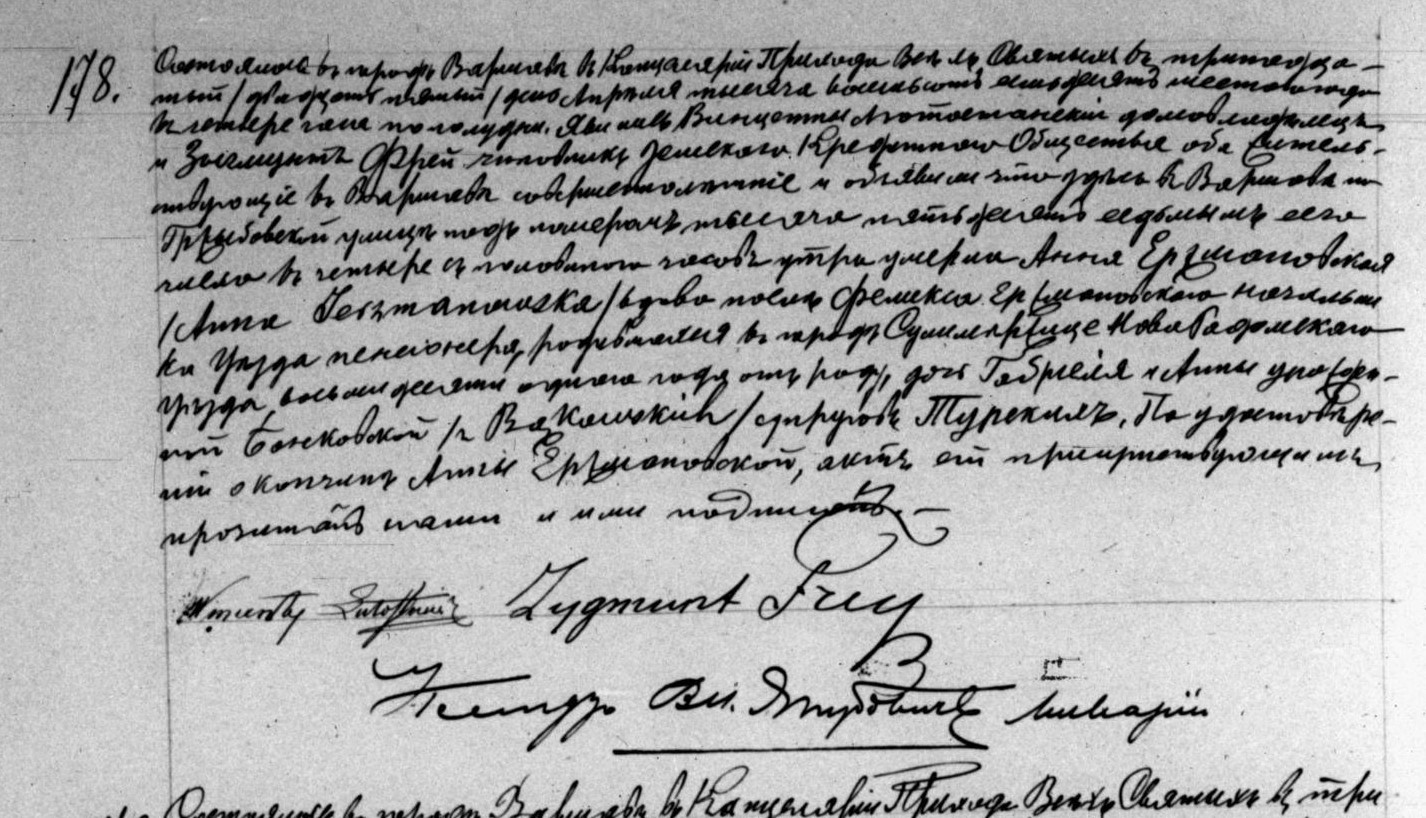 178.
Состоялось въ городѣ Варшавѣ въ Канцеляріи Прихода Всѣхъ Святыхъ въ тринадца-
тый /двадцать пятый/ дня Апрѣля тысяча восемьсотъ семьдесятъ шестого года
въ четыре часа по полудни. Явились Винцентый домовладѣлецъ
и Зыгмунтъ Фрей чиновникъ Земскаго Кредитнаго Общества оба житель-
ствующіе въ Варшавѣ совершеннолѣтніе и объявили что здѣсь въ Варшавѣ по
Гржибовской улицѣ подъ номеромъ тысяча пятьдесятъ седьмымъ сего
числа въ четыре съ половиною часовъ утра умерла Анна Ержмановская
/Anna Jerzmanowska/ вдова послѣ Феликса Ержмановскаго начальни
ка Уѣзда пенсіонера, родившаяся въ городѣ Ново Радомскаго
уѣзда, восьмидесяти одного года отъ роду, дочь Габріеля и Анны урожден-
ной Бонковской /z Bąkowskich/ супруговъ Турскихъ. По удостовѣре-
ніи о кончинѣ Анны Ержмановской, актъ сей присутствующимъ
прочитанъ нами и ими подписанъ.-
Wincenty Lutostański Zygmunt Frey
Ксендзъ Вл. Викарій
Состоялось въ городѣ Варшавѣ въ Канцеляріи Прихода Всѣхъ Святыхъ въ три